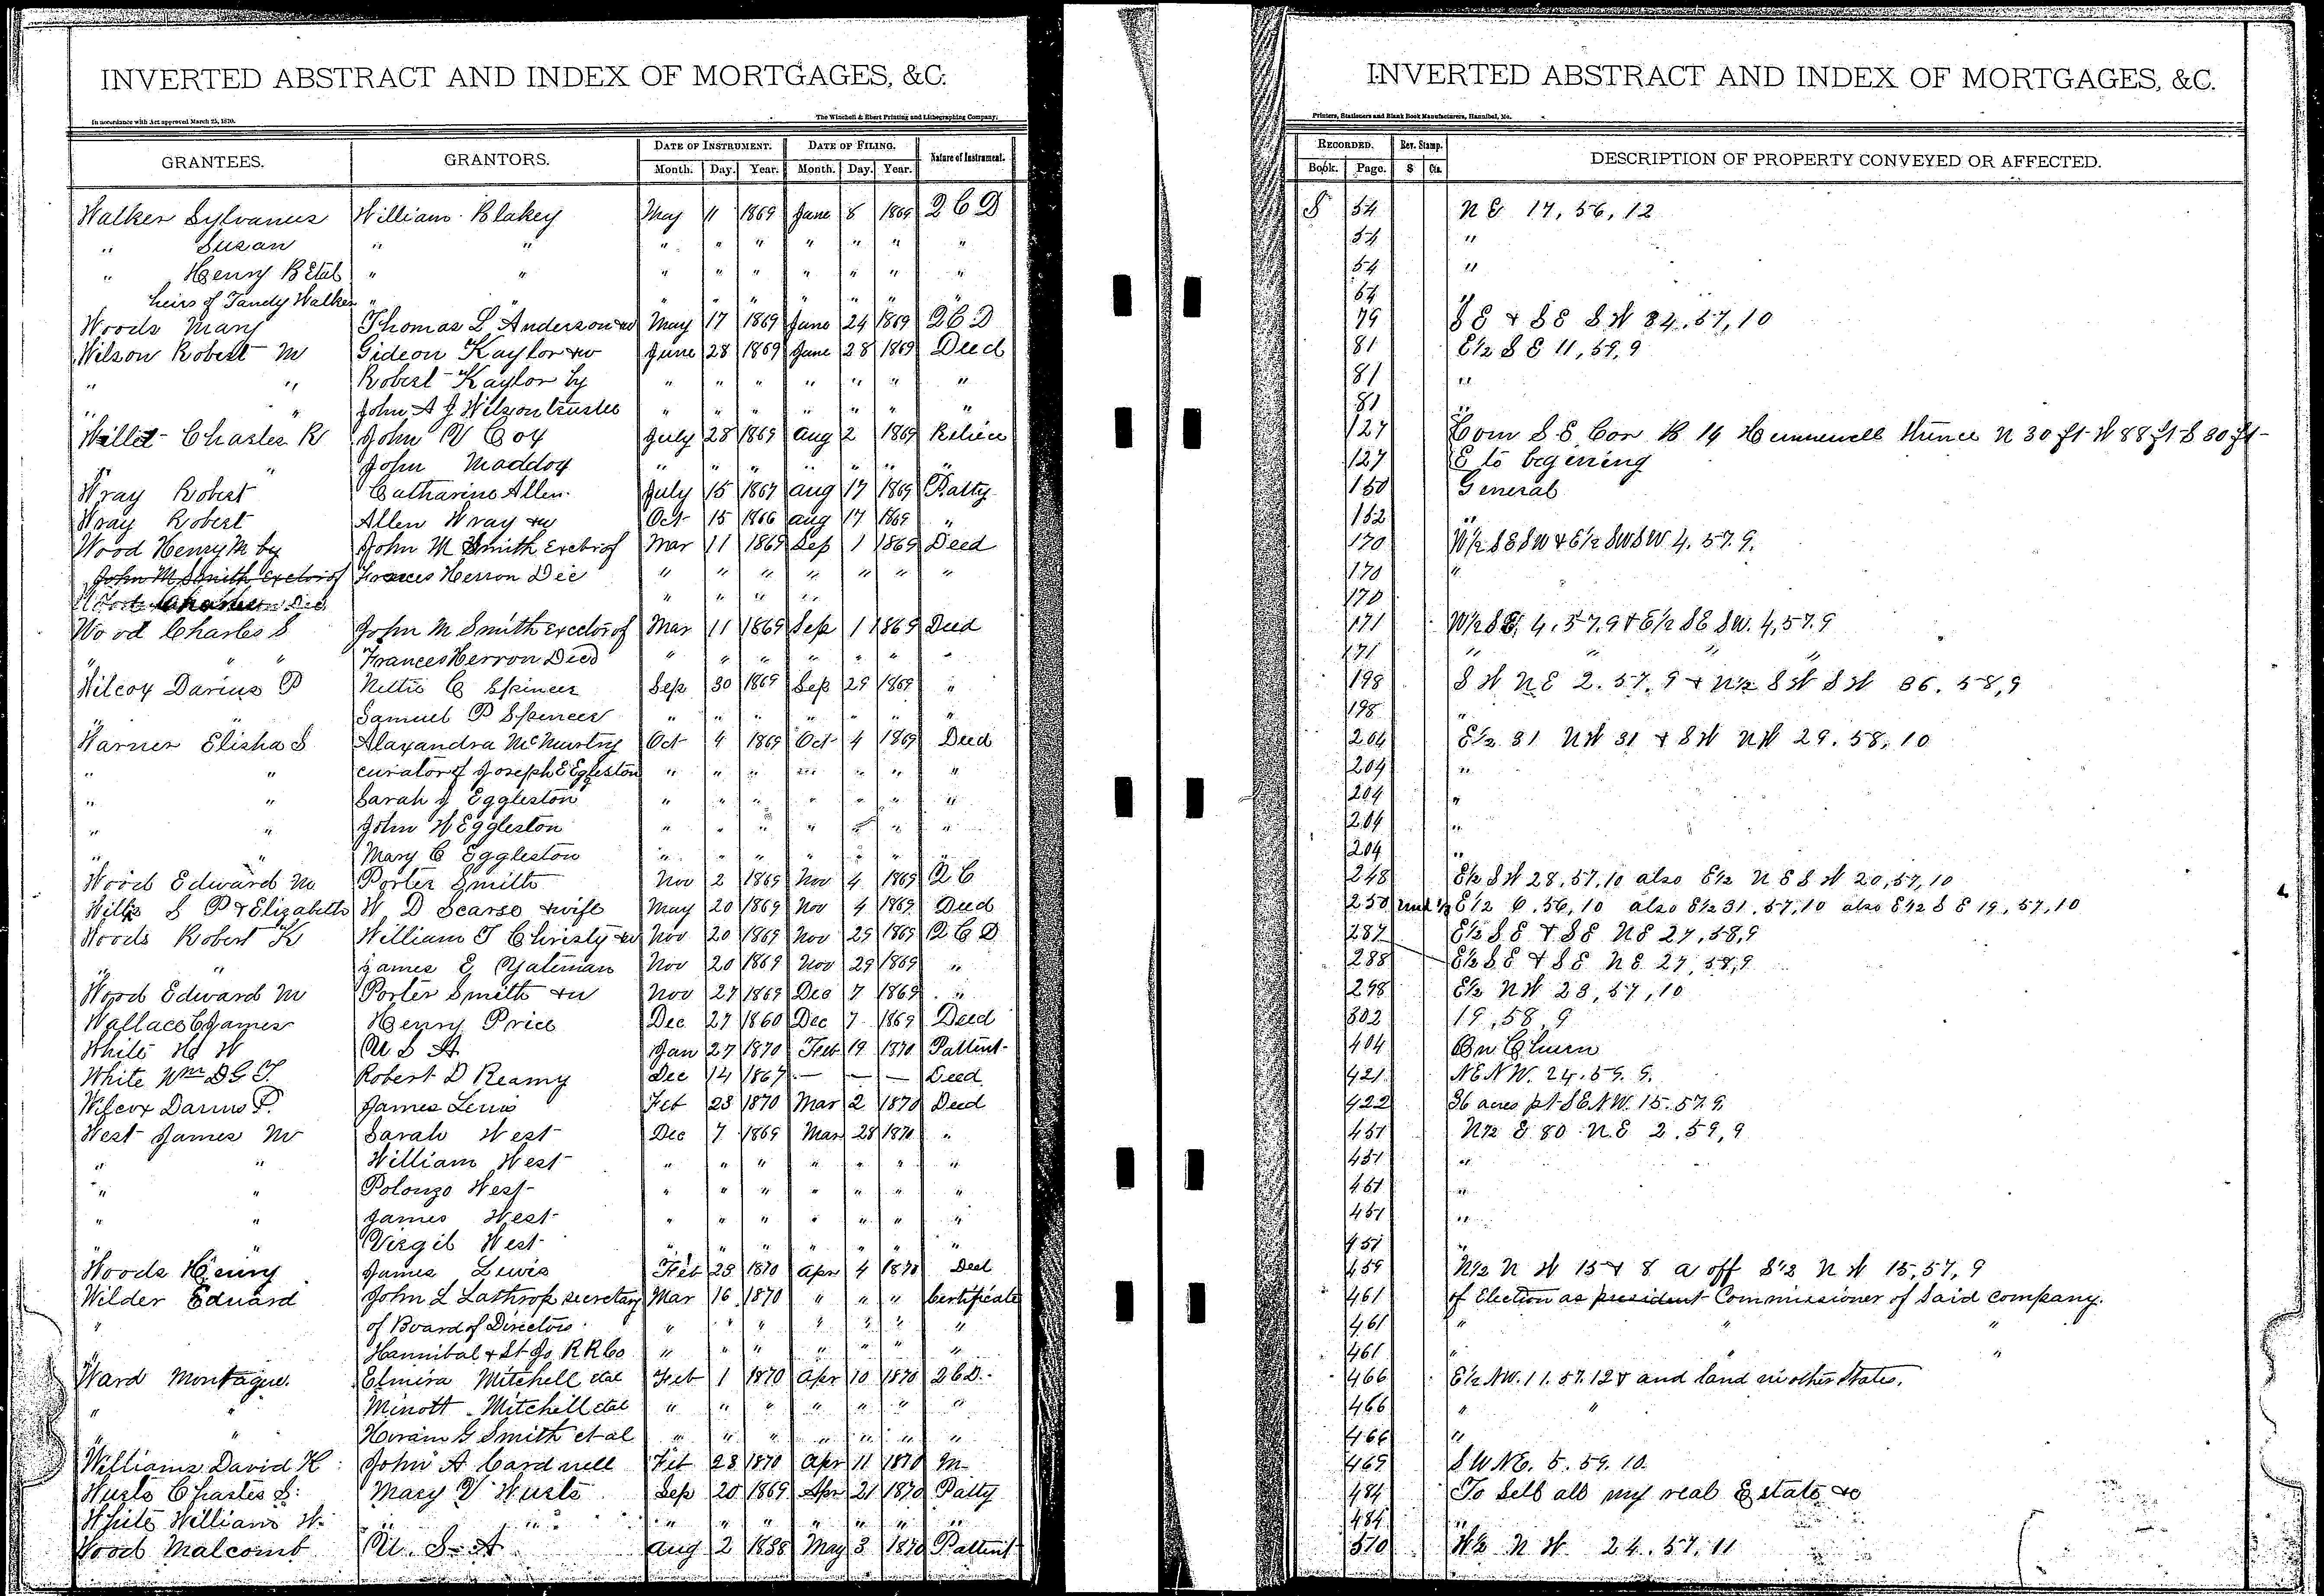 INVERTED ABSTRACT AND INDEX OF MORTGAGES, &C.
In accordance with Act approved March 25, 1870.
The Winchell & Ebert Printing and Lithographing Company,
GRANTEES. GRANTORS. DATE OF INSTRUMENT. DATE OF FILING. Nature of Instrument.
Month. Day. Year. Month. Day. Year.
Walker Sylvanus William Blakey May 11 1869 June 8 1869 Q C D
" Susan " " " " " " " " "
" Henry B Etal " " " " " " " " "
heirs of Tandy Walker " " " " " " " " "
Woods Mary Thomas L Anderson & w May 17 1869 June 24 1869 Q C D
Wilson Robert M Gideon Kaylor & w June 28 1869 June 28 1869 Deed
" " Robert Kaylor by " " " " " " "
" " John A J Wilson trustee " " " " " " "
Willet Charles R John V Coy July 28 1869 Aug 2 1869
" John Maddox " " " " " " "
Wray Robert Catharine Allen July 15 1867 Aug 17 1869 Patty
Wray Robert Allen Wray & w Oct 15 1866 Aug 17 1869 "
Wood Henry M by John M Smith Exctr of Mar 11 1869 Sep 1 1869 Deed
John M Smith Exctor of Frances Herron Dec " " " " " " "
" " " "
Wood Charles S John M Smith Exctor of Mar 11 1869 Sep 1 1869 Deed
" " " Frances Herron Decd " " " " " " "
Wilcox Darius P Nettie C Spencer Sep 30 1869 Sep 29 1869 "
" Samuel P Spencer " " " " " " "
Warner Elisha S Alaxandra McMurtry Oct 4 1869 Oct 4 1869 Deed
" " curator of Joseph E Eggleston " " " " " " "
" " Sarah J Eggleston " " " " " " "
" " John W Eggleston " " " " " " "
" " Mary C Eggleston " " " " " " "
Wood Edward M Porter Smith Nov 2 1869 Nov 4 1869 Q C
Willis S P & Elizabeth W D Scarse & wife May 20 1869 Nov 4 1869 Deed
Woods Robert K William T Christy & w Nov 20 1869 Nov 29 1869 Q C D
" " James E Yateman Nov 20 1869 Nov 29 1869 "
Wood Edward M Porter Smith & w Nov 27 1869 Dec 7 1869 "
Wallace C James Henry Price Dec 27 1860 Dec 7 1869 Deed
White H W U S A Jan 27 1870 Feb 19 1870 Pattent
White Wm D G T Robert D Reamy Dec 14 1867 — — — Deed
Wilcox Darius P. James Lewis Feb 23 1870 Mar 2 1870 Deed
West James M Sarah West Dec 7 1869 Mar 28 1870 "
" " William West " " " " " " "
" " Polonzo West " " " " " " "
" " James West " " " " " " "
" " Virgil West " " " " " " "
Woods Henry James Lewis Feb 23 1870 Apr 4 1870 Deed
Wilder Eduard John L Lathrop secretary Mar 16 1870 " " " Certificate
" of Board of Directors " " " " " " "
Hannibal & St Jo R R Co " " " " " " "
Ward Montague. Elmira Mitchell etal Feb 1 1870 Apr 10 1870 Q C D.
" " Minott Mitchell etal " " " " " " "
" " Hiram G Smith et al " " " " " " "
Williams David H John A Cardwell Feb 28 1870 Apr 11 1870 M
Wurts Charles S: Mary V Wurts Sep 20 1869 Apr 21 1870 Patty
White William W. " " " " " " " "
Wood Malcomb U. S. A Aug 2 1838 May 3 1870 Pattent
INVERTED ABSTRACT AND INDEX OF MORTGAGES, &C.
Printers, Stationers and Blank Book Manufacturers, Hannibal, Mo.
RECORDED. Rev. Stamp. DESCRIPTION OF PROPERTY CONVEYED OR AFFECTED.
Book. Page. $ Cts.
S 54 N E 17, 56, 12
54 "
54 "
54 "
79 S E & S E S W 34, 57, 10
81 E½ S E 11, 59, 9
81 "
81 "
127 Com S E Cor B 14 Hunnewell thence N 30 ft W 88 ft S 30 ft
127 E to begening
150 General
152 "
170 W½ SE SW & E½ SW SW 4. 57. 9.
170 "
170
171 W½ SE, 4, 57, 9 & E½ SE SW. 4, 57. 9
171 " " " "
198 S W N E 2. 57, 9 & N½ S W S W 36. 58, 9
198 "
204 E½ 31 N W 31 & S W N W 29. 58, 10
204 "
204 "
204 "
204 "
248 E½ S W 28, 57, 10 also E½ N E S W 20, 57, 10
250 und ½ E½ 6, 56, 10 also E½ 31, 57, 10 also E½ S E 19, 57, 10
287 E½ S E & S E N E 27, 58, 9
288 E½ S E & S E N E 27, 58, 9
298 E½ N W 23, 57, 10
302 19, 58, 9
404
421 NE NW. 24. 59. 9.
422 36 acres pt SE NW. 15. 57. 9.
451 N½ E 80 N E 2. 59, 9
451 "
451 "
451 "
451 "
459 N½ N W 15 & 8 a off S½ N W 15, 57, 9
461 of Election as president Commissioner of said company.
461 " " "
461 " " "
466 E½ NW. 11. 57. 12 & and land in other States.
466 " "
466 "
469 S W NE. 5. 59. 10.
484 To Sell all my real Estate &c
484 "
510 W½ N W 24. 57, 11